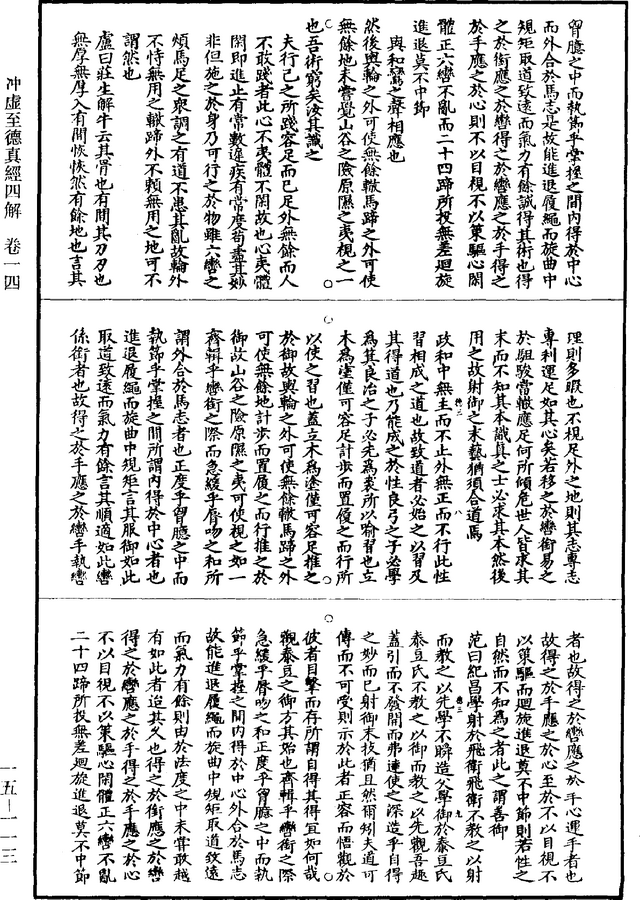 胷臆之中而執節乎掌握之間內得於中心
而外合於馬志是故能進退履繩而旋曲中
規矩取道致遠而氣力有餘誠得其術也得
之於銜應之於轡得之於轡應之於手得之
於手應之於心則不以目視不以策驅心閑
體正六轡不亂而二十四蹄所投無差迴旋
進退莫不中節
與和鸞之聲相應也
然後輿輪之外可使無餘轍馬蹄之外可使
無餘地未嘗覺山谷之險原隰之夷視之一
也吾術窮矣汝其識之
夫行己之所踐容足而已足外無餘而人
不敢踐者此心不夷體不閑故也心夷體
閑即進止有常數遲疾有常度苟盡其妙
非但施之於身乃可行之於物雖六轡之
煩馬足之衆調之有道不患其亂故輪外
不恃無用之轍蹄外不賴無用之地可不
謂然也
盧曰莊生解牛云其骨也有間其刀刃也
無厚無厚入有間恢恢然有餘地也言其
理則多暇也不視足外之地則其志專志
專利運足如其心矣若移之於轡銜易之
於駔駿當轍應足何所傾危世人皆求其
末而不知其本識真之士必求其本然後
用之故射御之末藝猶須合道焉
政和中無主而不止外無正而不行此性
習相成之道也故致道者必始之以習及
其得道也乃能成之於性良弓之子必學
爲箕良冶之子必先爲裘所以喻習也立
木爲塗僅可容足計步而置履之而行所
以使之習也蓋立木爲塗僅可容足推之
於御故輿輪之外可使無餘轍馬蹄之外
可使無餘地計步而置履之而行推之於
御故山谷之險原隰之夷可使視之如一
齊輯乎轡銜之際而急緩乎脣吻之和所
謂外合於馬志者也正度乎胷臆之中而
執節乎掌握之間所謂內得於中心者也
進退履繩而旋曲中規矩言其服御如此
取道致遠而氣力有餘言其順適如此轡
係銜者也故得之於手應之於轡手執轡
者也故得之於轡應之於手心運手者也
故得之於手應之於心至於不以目視不
以策驅而迴旋進退莫不中節則若性之
自然而不知為之者此之謂善御
范曰紀昌學射於飛衛飛衛不教之以射
而教之以先學不瞬造父學御於泰豆氏
泰豆氏不教之以御而教之以先觀吾趣
蓋引而不發開而弗達使之深造乎自得
之妙而已射御末技猶且然爾矧夫道可
傳而不可受則示於此者正容而悟觀於
彼者目擊而存所謂自得其得宜如何哉
觀泰豆之御方其始也齊輯乎轡銜之際
急緩乎脣吻之和正度乎胷臆之中而執
節乎掌握之間內得於中心外合於馬志
故能進退履繩而旋曲中規矩取道致遠
而氣力有餘則由於法度之中未嘗敢越
有如此者迨其久也得之於銜應之於轡
得之於轡應之於手得之於手應之於心
不以目視不以策驅心閑體正六轡不亂
二十四蹄所投無差迴旋進退莫不中節
冲虛至德真經四解 卷一四
一五—一一三